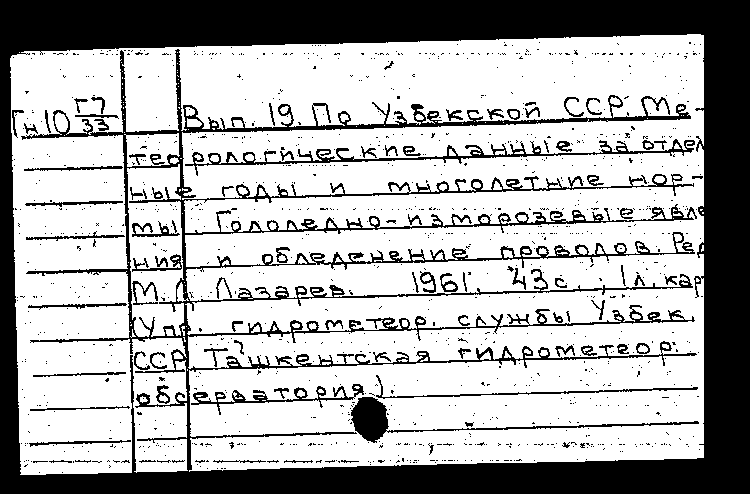 Гн10 Г7/33 Вып. 19. По Узбекской ССР. Ме-
теорологические данные за отдел
ные годы и многолетние нор-
мы. Гололедно-изморозевые явле
ния и обледенение проводов. Ред
М.Л. Лазарев. 1961. 43с., 1л. кар
(Упр. гидрометеор. службы Узбек.
ССР. Ташкентская гидрометеор.
обсерватория).